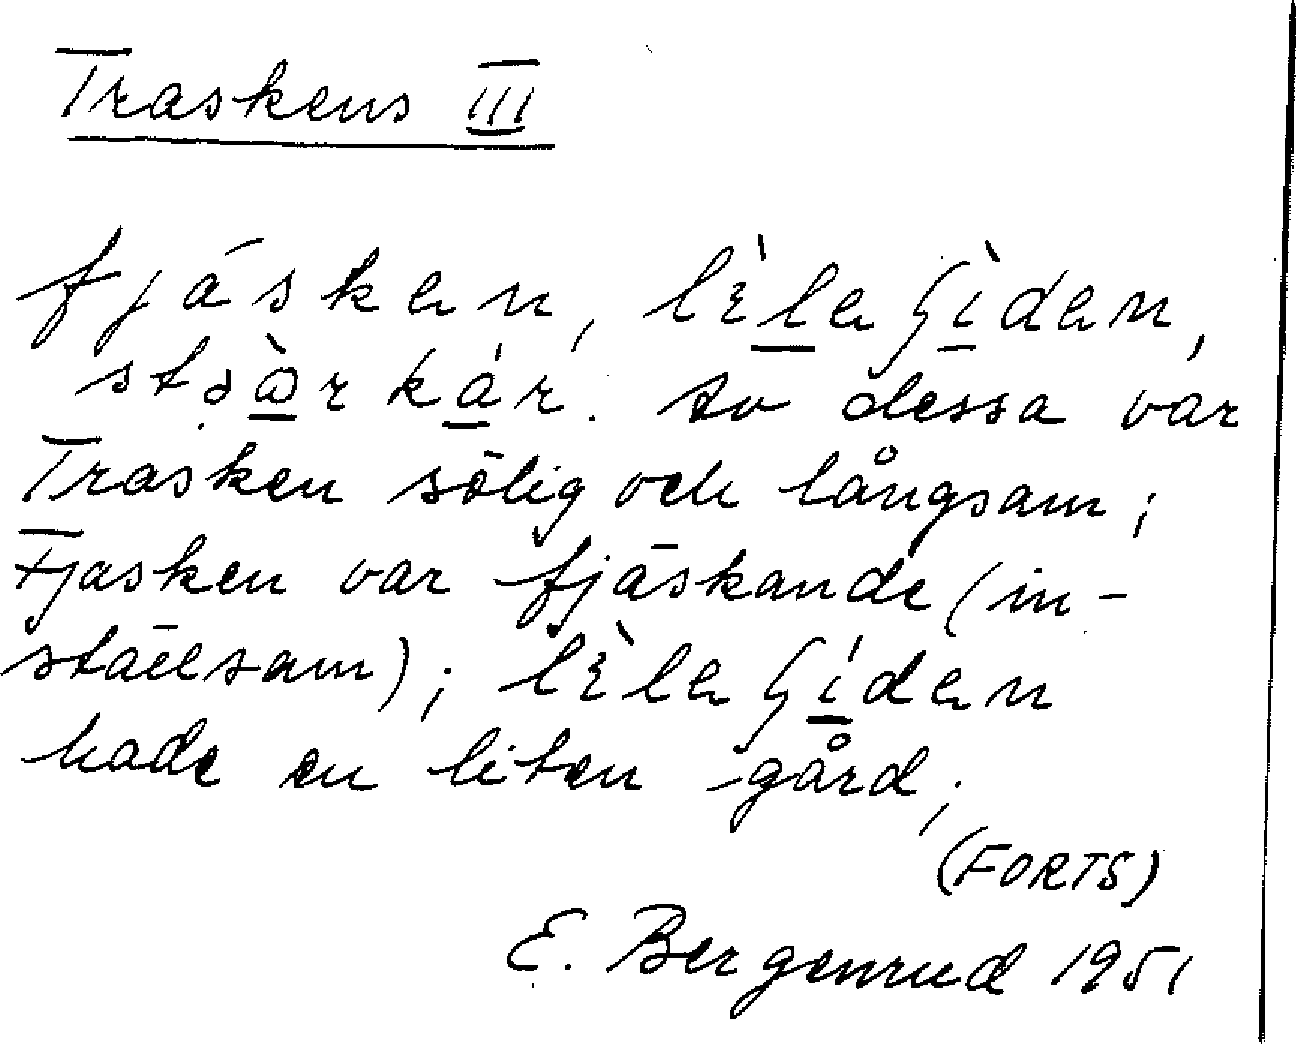 Traskens III
fjáskan, lὲla Gìdan,
stɔ̀r kár. Av dessa var
Trasken sölig och långsam;
Fjasken var fjäskande (in-
ställsam); lὲla Gídan
hade en liten gård;
(FORTS)
E. Bergenrud 1951